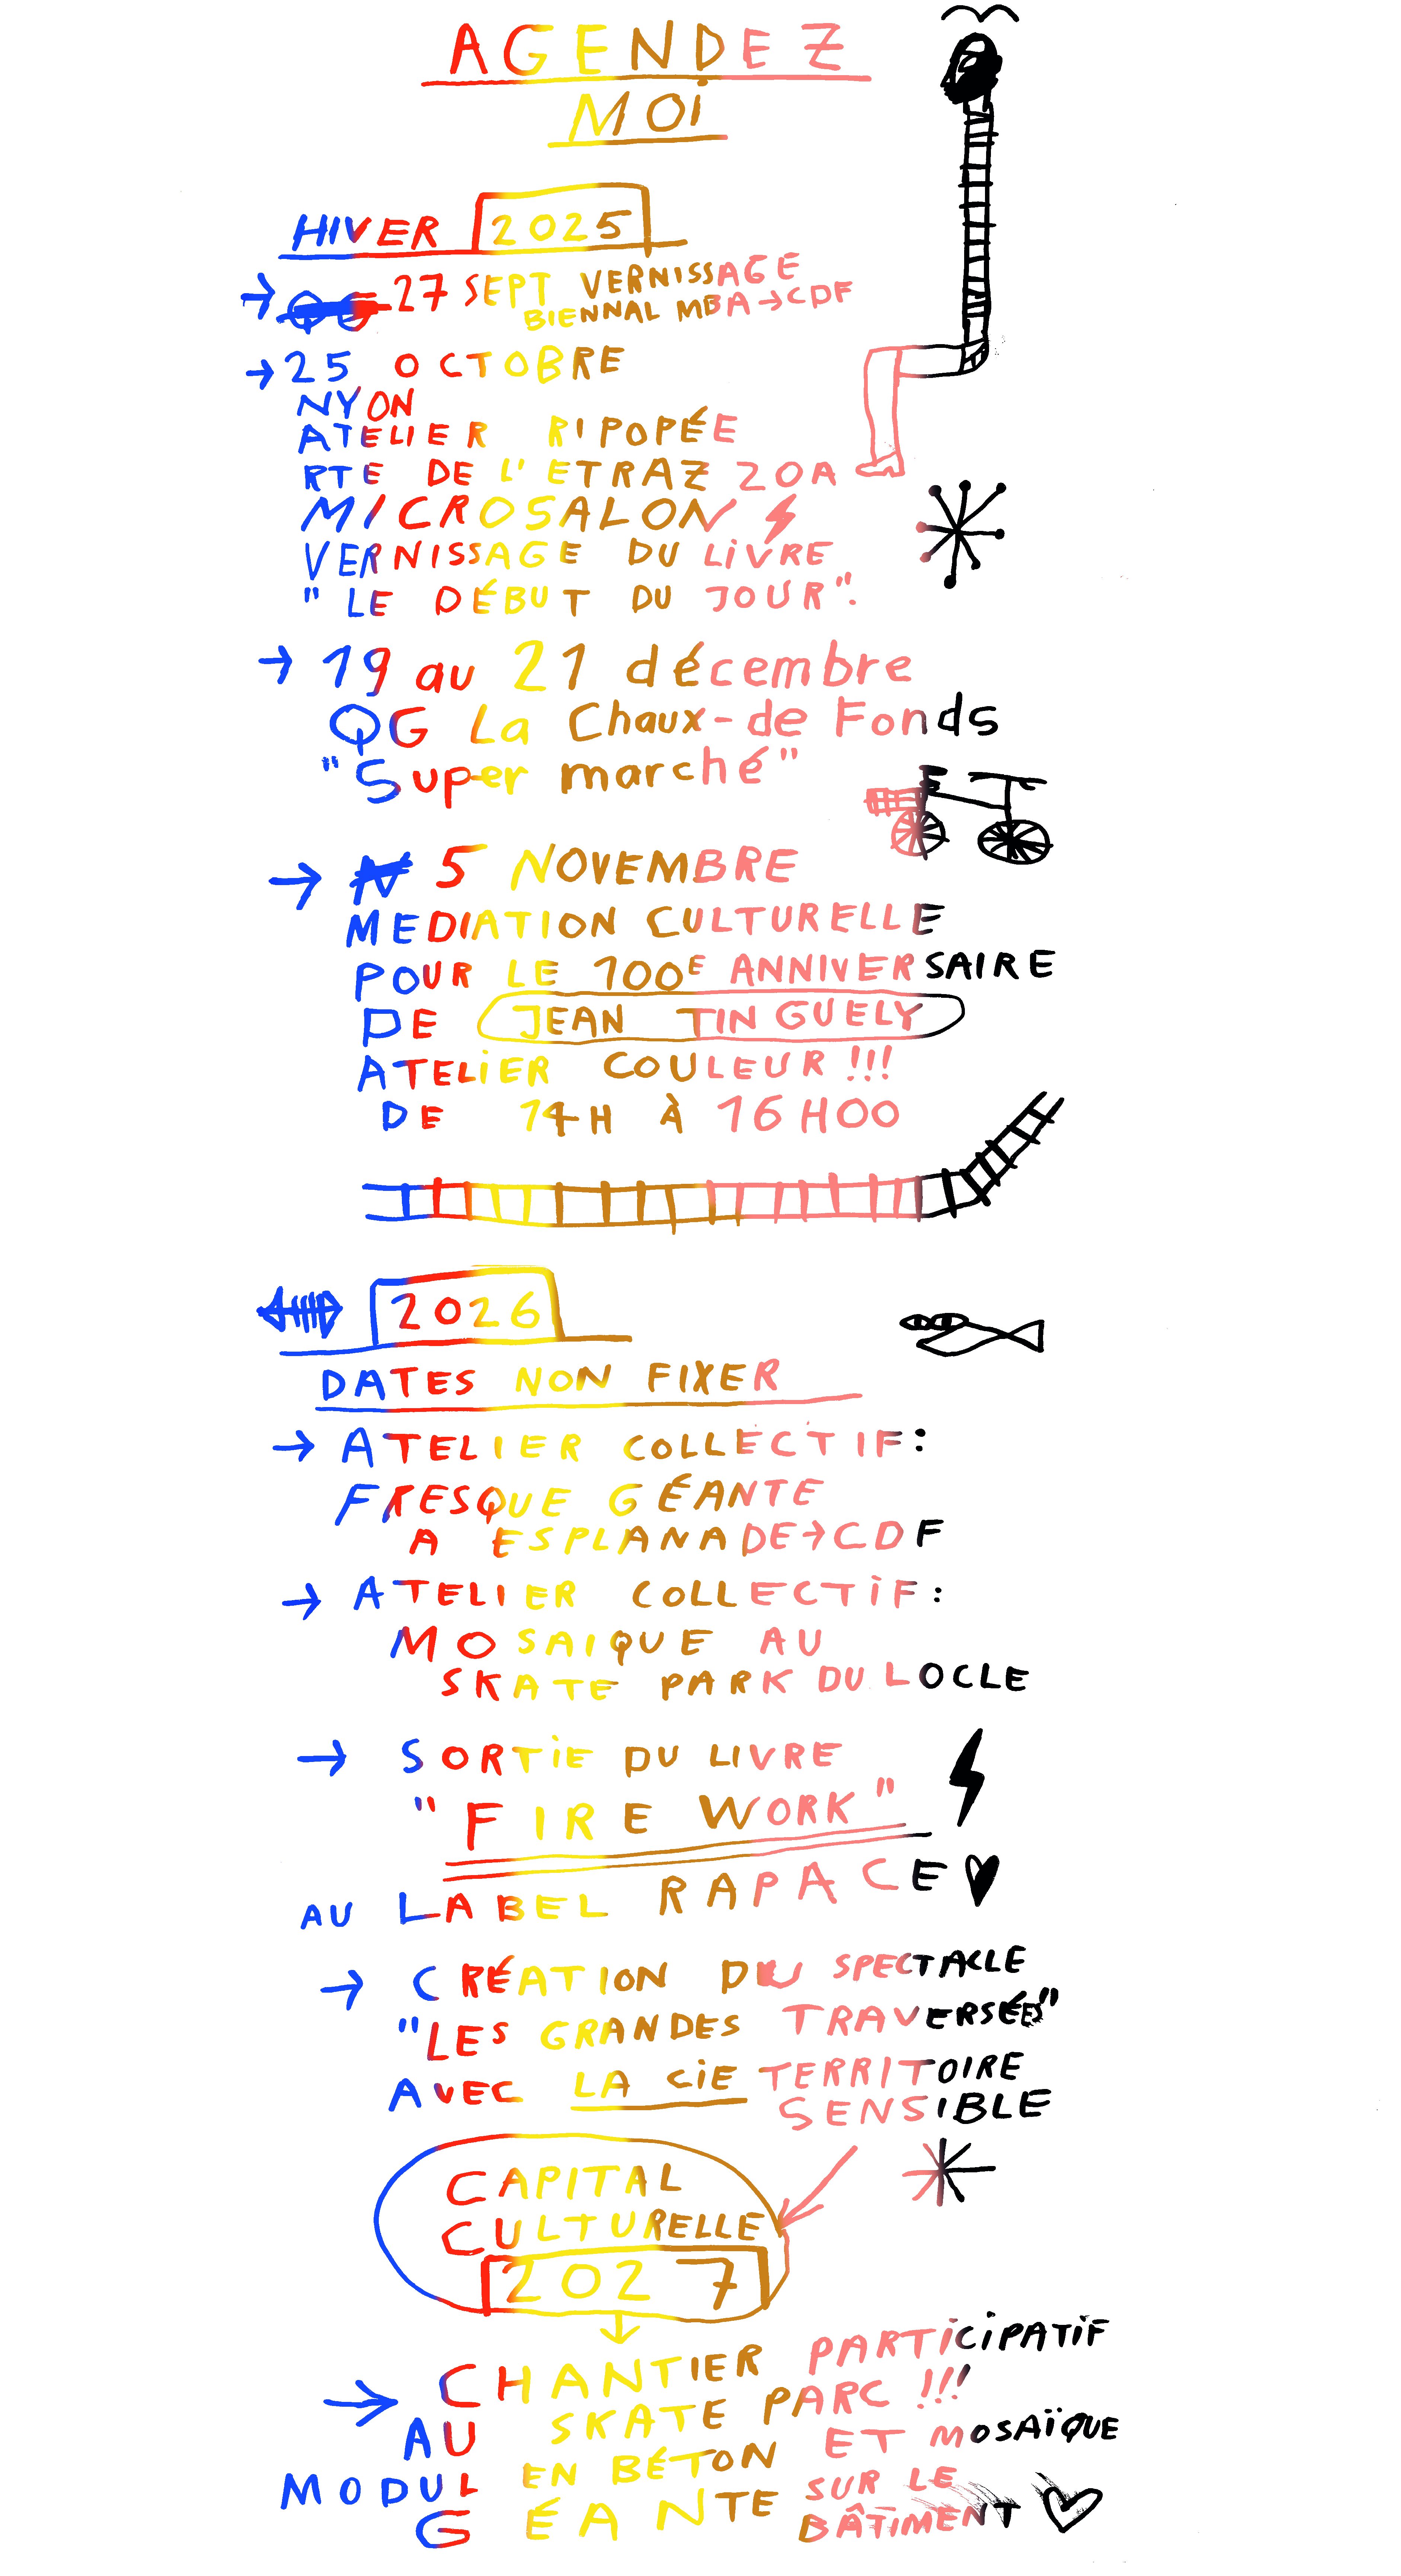 AGENDEZ
MOI
HIVER 2025
→ 27 SEPT VERNISSAGE
BIENNAL MBA→CDF
→ 25 OCTOBRE
NYON
ATELIER RIPOPÉE
RTE DE L'ETRAZ 20A
MICROSALON
VERNISSAGE DU LIVRE
"LE DÉBUT DU JOUR".
→ 19 au 21 décembre
QG La Chaux-de Fonds
"Super marché"
→ 5 NOVEMBRE
MEDIATION CULTURELLE
POUR LE 100E ANNIVERSAIRE
DE JEAN TINGUELY
ATELIER COULEUR !!!
DE 14H À 16H00
2026
DATES NON FIXER
→ ATELIER COLLECTIF:
FRESQUE GÉANTE
A ESPLANADE→CDF
→ ATELIER COLLECTIF:
MOSAIQUE AU
SKATE PARK DU LOCLE
→ SORTIE DU LIVRE
"FIRE WORK"
AU LABEL RAPACE
→ CRÉATION DU SPECTACLE
"LES GRANDES TRAVERSÉES"
AVEC LA CIE TERRITOIRE
SENSIBLE
CAPITAL
CULTURELLE
2027
→ CHANTIER PARTICIPATIF
AU SKATE PARC !!!
MODUL EN BÉTON ET MOSAÏQUE
GÉANTE SUR LE
BÂTIMENT